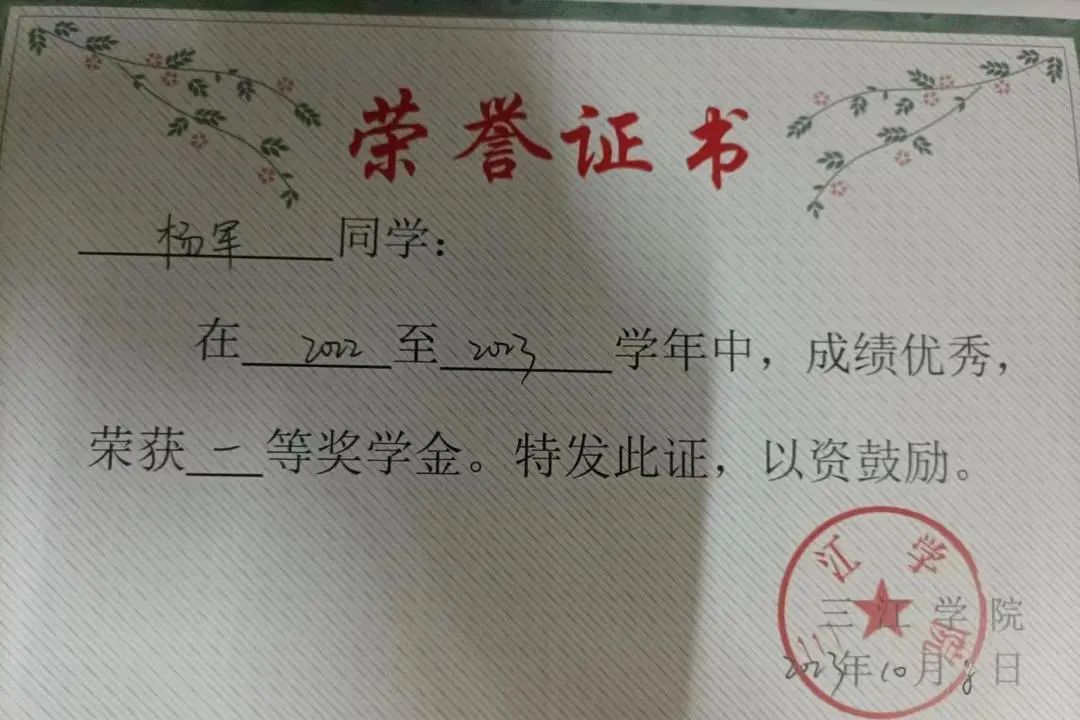 荣誉证书
杨军同学：
在2022至2023学年中，成绩优秀，
荣获一等奖学金。特发此证，以资鼓励。
三江学院
三江学院
2023年10月8日